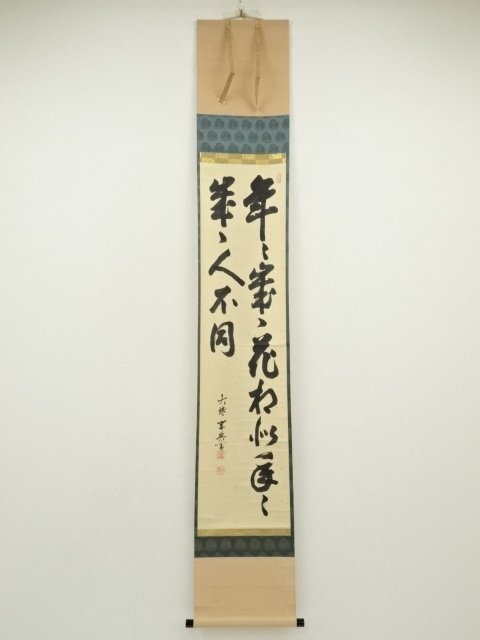 年々歳々花相似年々
歳々人不同